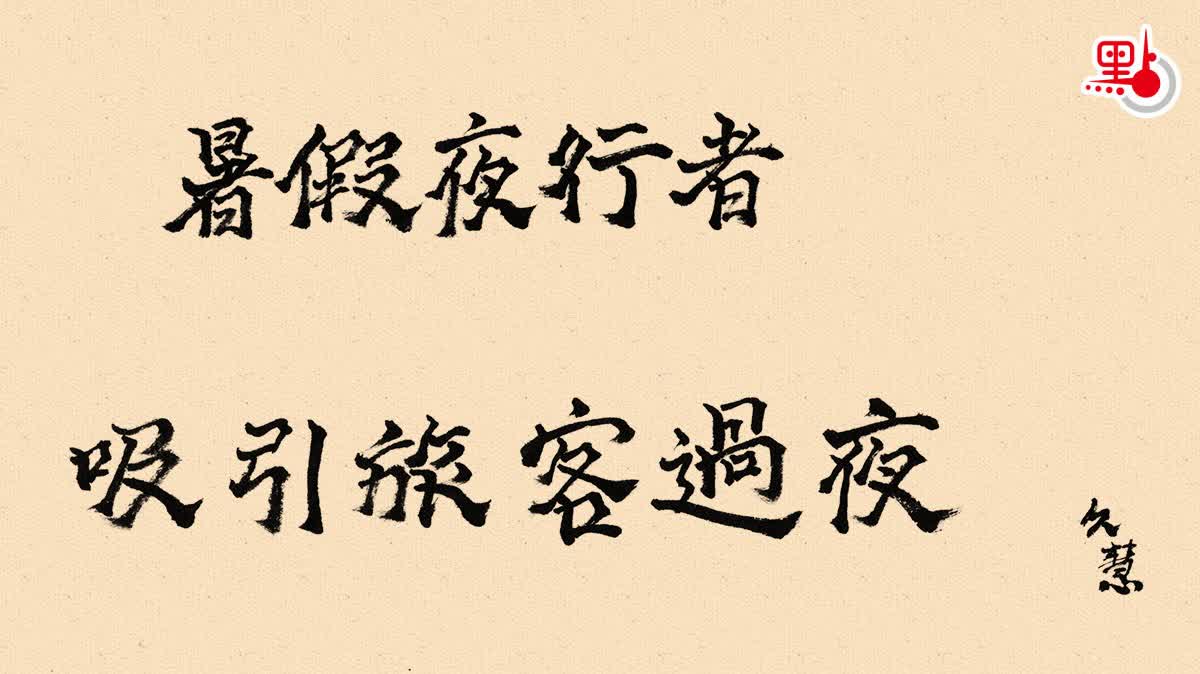 點
暑假夜行者
吸引旅客過夜
久慧